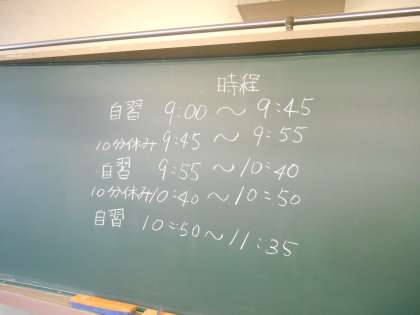 時程
自習 9:00 〜 9:45
10分休み 9:45 〜 9:55
自習 9:55 〜 10:40
10分休み 10:40 〜 10:50
自習 10:50 〜 11:35